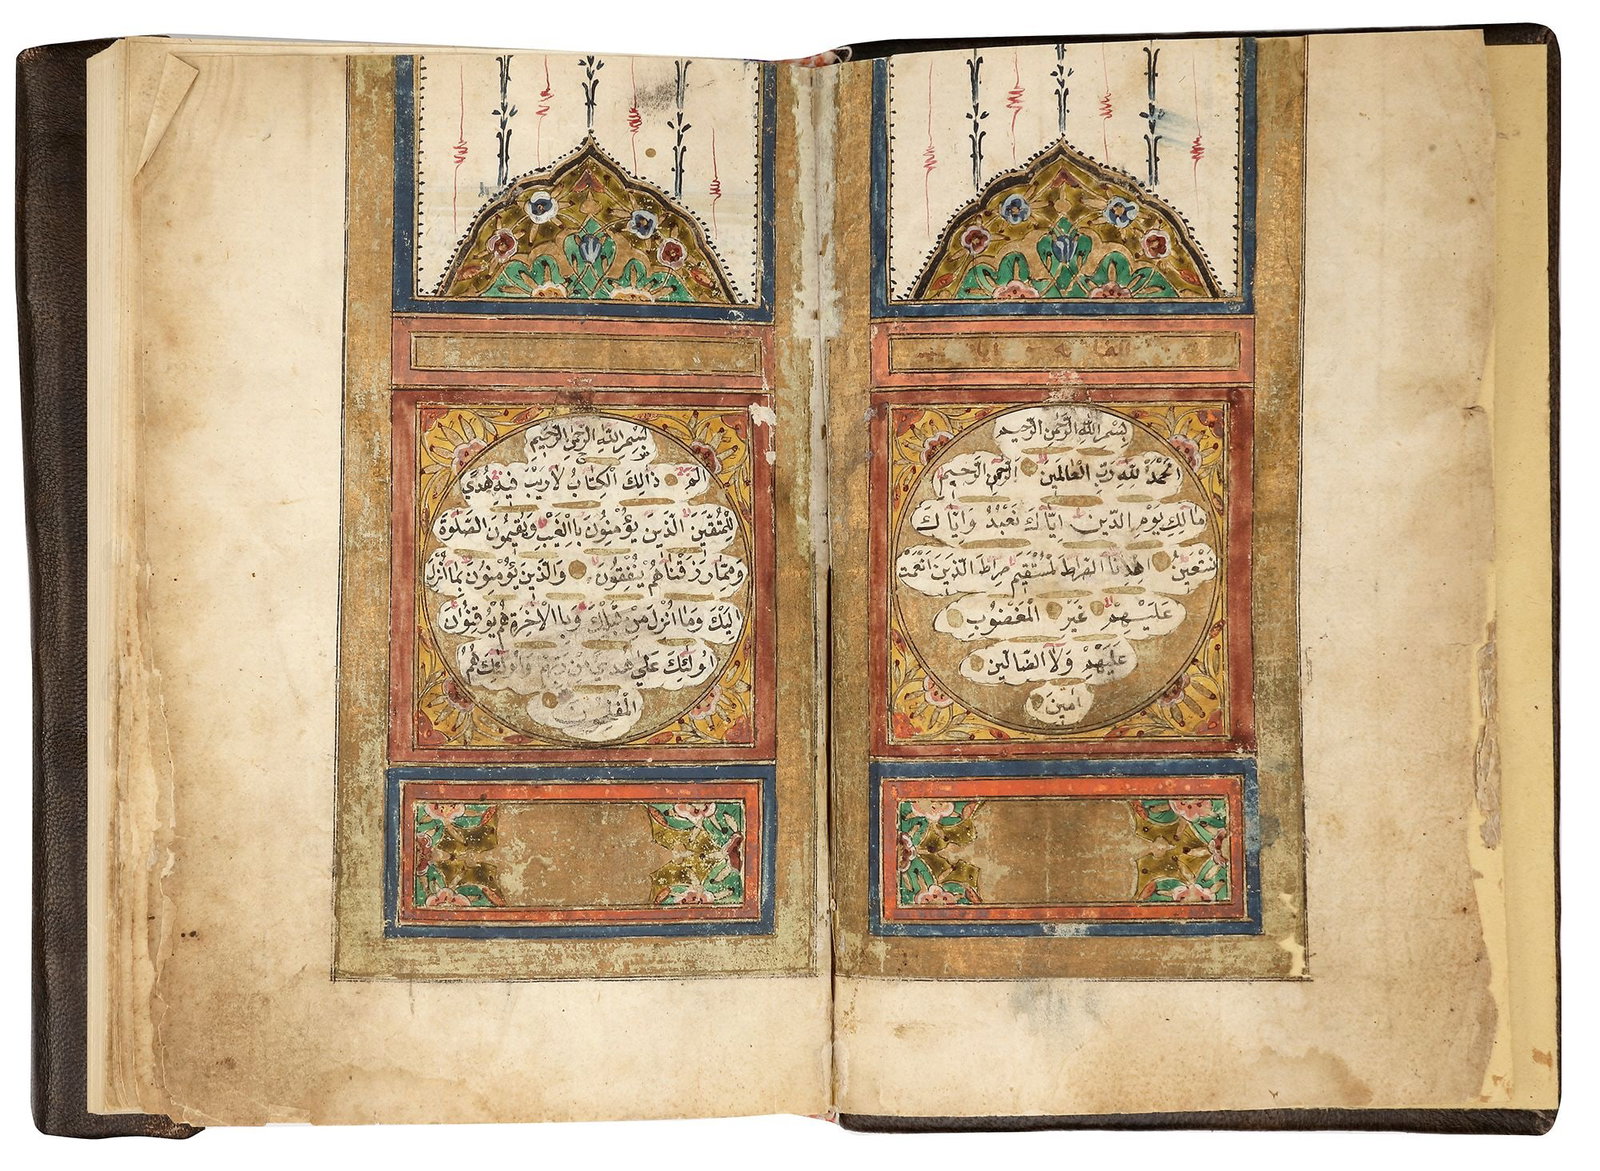 بِسْمِ اللّٰهِ الرَّحْمٰنِ الرَّحِيمِ
اَلْحَمْدُ لِلّٰهِ رَبِّ الْعَالَمِينَ الرَّحْمٰنِ الرَّحِيمِ
مَالِكِ يَوْمِ الدِّينِ اِيَّاكَ نَعْبُدُ وَاِيَّاكَ
نَسْتَعِينُ اِهْدِنَا الصِّرَاطَ الْمُسْتَقِيمَ صِرَاطَ الَّذِينَ اَنْعَمْتَ
عَلَيْهِمْ غَيْرِ الْمَغْضُوبِ
عَلَيْهِمْ وَلَا الضَّالِّينَ
اٰمِينَ
بِسْمِ اللّٰهِ الرَّحْمٰنِ الرَّحِيمِ
الٓمٓ ذَالِكَ الْكِتَابُ لَارَيْبَ فِيهِ هُدًى
لِلْمُتَّقِينَ الَّذِينَ يُؤْمِنُونَ بِاالْغَيْبِ وَيُقِيمُونَ الصَّلٰوةَ
وَمِمَّا رَزَقْنَاهُمْ يُنْفِقُونَ وَالَّذِينَ يُؤْمِنُونَ بِمَا اُنْزِلَ
اِلَيْكَ وَمَا اُنْزِلَ مِنْ قَبْلِكَ وَبِاالْاٰخِرَةِ هُمْ يُوقِنُونَ
اُولٰئِكَ عَلٰي هُدًى مِنْ رَبِّهِمْ وَاُولٰئِكَ هُمُ
الْمُفْلِحُونَ